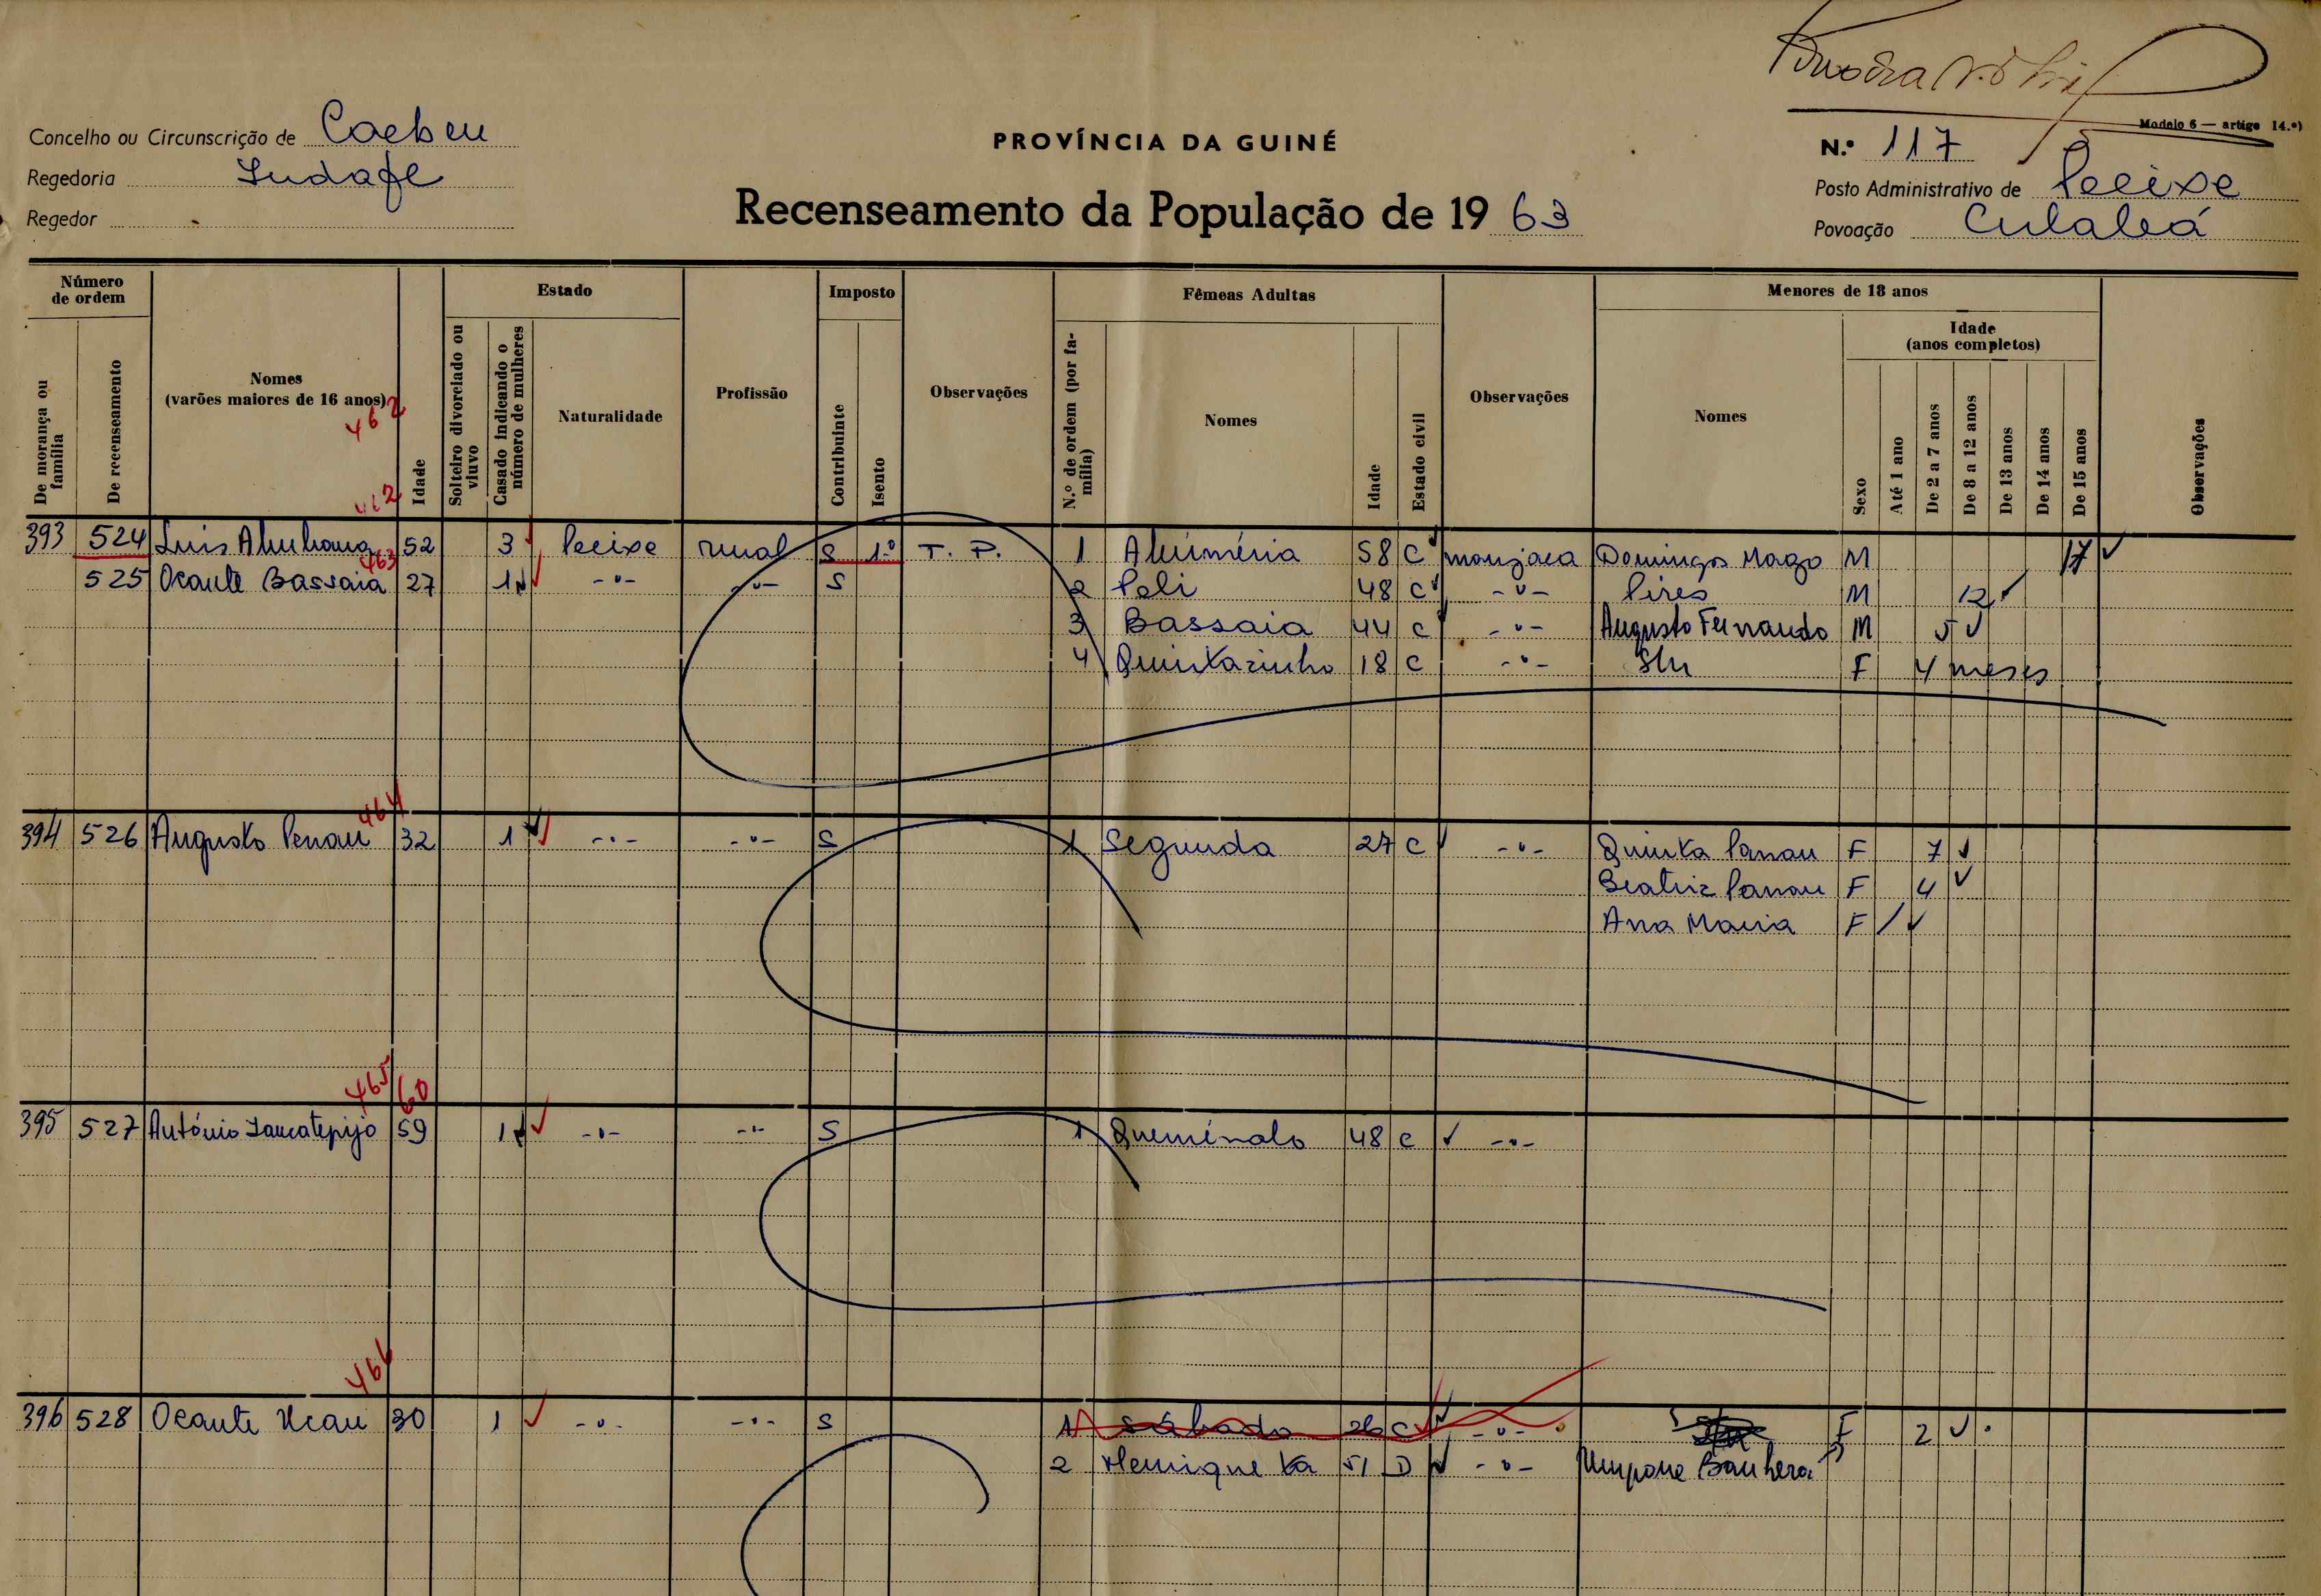 Modelo 6 — artigo 14.º)
Concelho ou Circunscrição de
PROVÍNCIA DA GUINÉ
N.º 117
Regedoria
Posto Administrativo de Pecixe
Regedor
Recenseamento da População de 19 63
Povoação
Número de ordem
Estado
Imposto
Fêmeas Adultas
Menores de 18 anos
De morança ou família
De recenseamento
Nomes (varões maiores de 16 anos)
Idade
Solteiro divorciado ou viuvo
Casado indicando o número de mulheres
Naturalidade
Profissão
Contribuinte
Isento
Observações
N.º de ordem (por família)
Nomes
Idade
Estado civil
Observações
Nomes
Sexo
Idade (anos completos)
Até 1 ano
De 2 a 7 anos
De 8 a 12 anos
De 13 anos
De 14 anos
De 15 anos
Observações
462
462
393 524 Luis 52 3 Pecixe rural S 1º T. P. 1 58 C manjaca Domingos Mago M 17
463
525 Ocante Bassaia 27 1 -"- -"- S 2 Peli 48 C -"- Pires M 12
3 Bassaia 44 C -"- Augusto Fernando M 5
4 Quintazinho 18 C -"- F 4 meses
464
394 526 Augusto Penau 32 1 -"- -"- S 1 Segunda 27 C -"- Quinta Panau F 7
Beatriz Panau F 4
Ana Maria F /
465 60
395 527 António 59 1 -"- -"- S 1 48 C -"-
466
396 528 Ocante 30 1 -"- -"- S 1 Sábado 26 C -"- F 2
2 51 D -"-